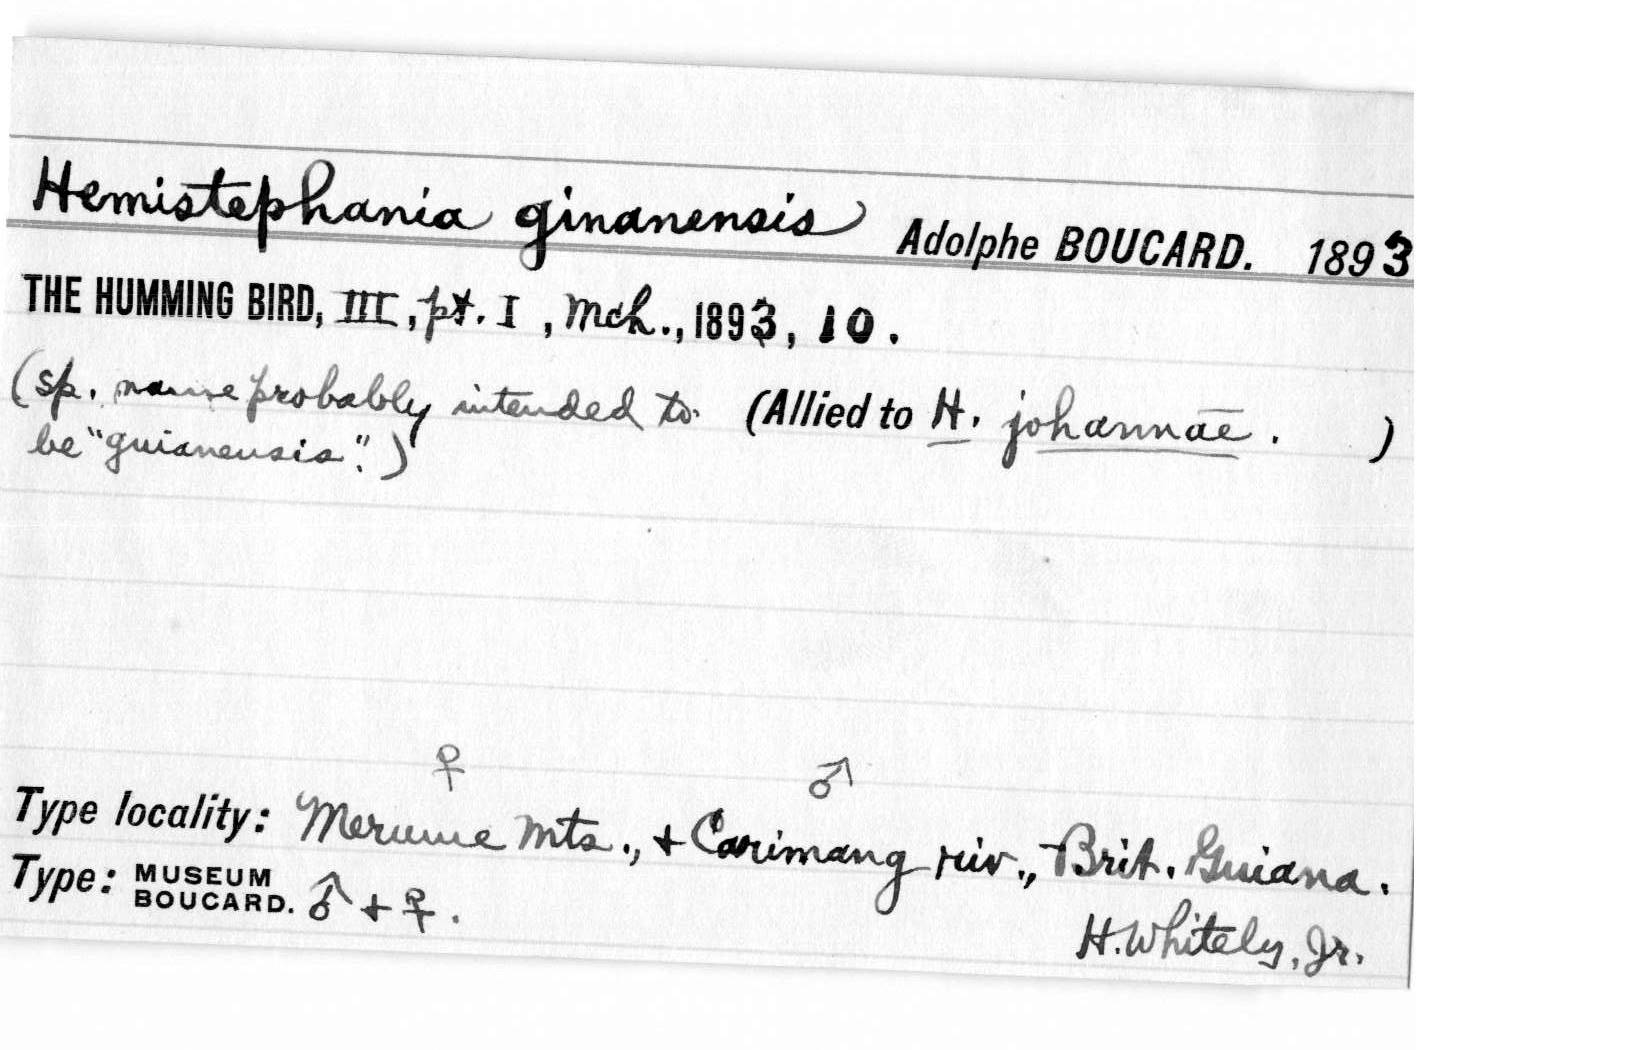 Hemistephania ginanensis Adolphe BOUCARD. 1893
THE HUMMING BIRD, III, pt. I, Mch., 1893, 10.
(sp. name probably intended to (Allied to H. johannae. )
be "guianensis".)
♀ ♂
Type locality: Merume Mts., + Carimang riv., Brit. Guiana.
Type: MUSEUM BOUCARD. ♂ + ♀.
H. Whitely, Jr.